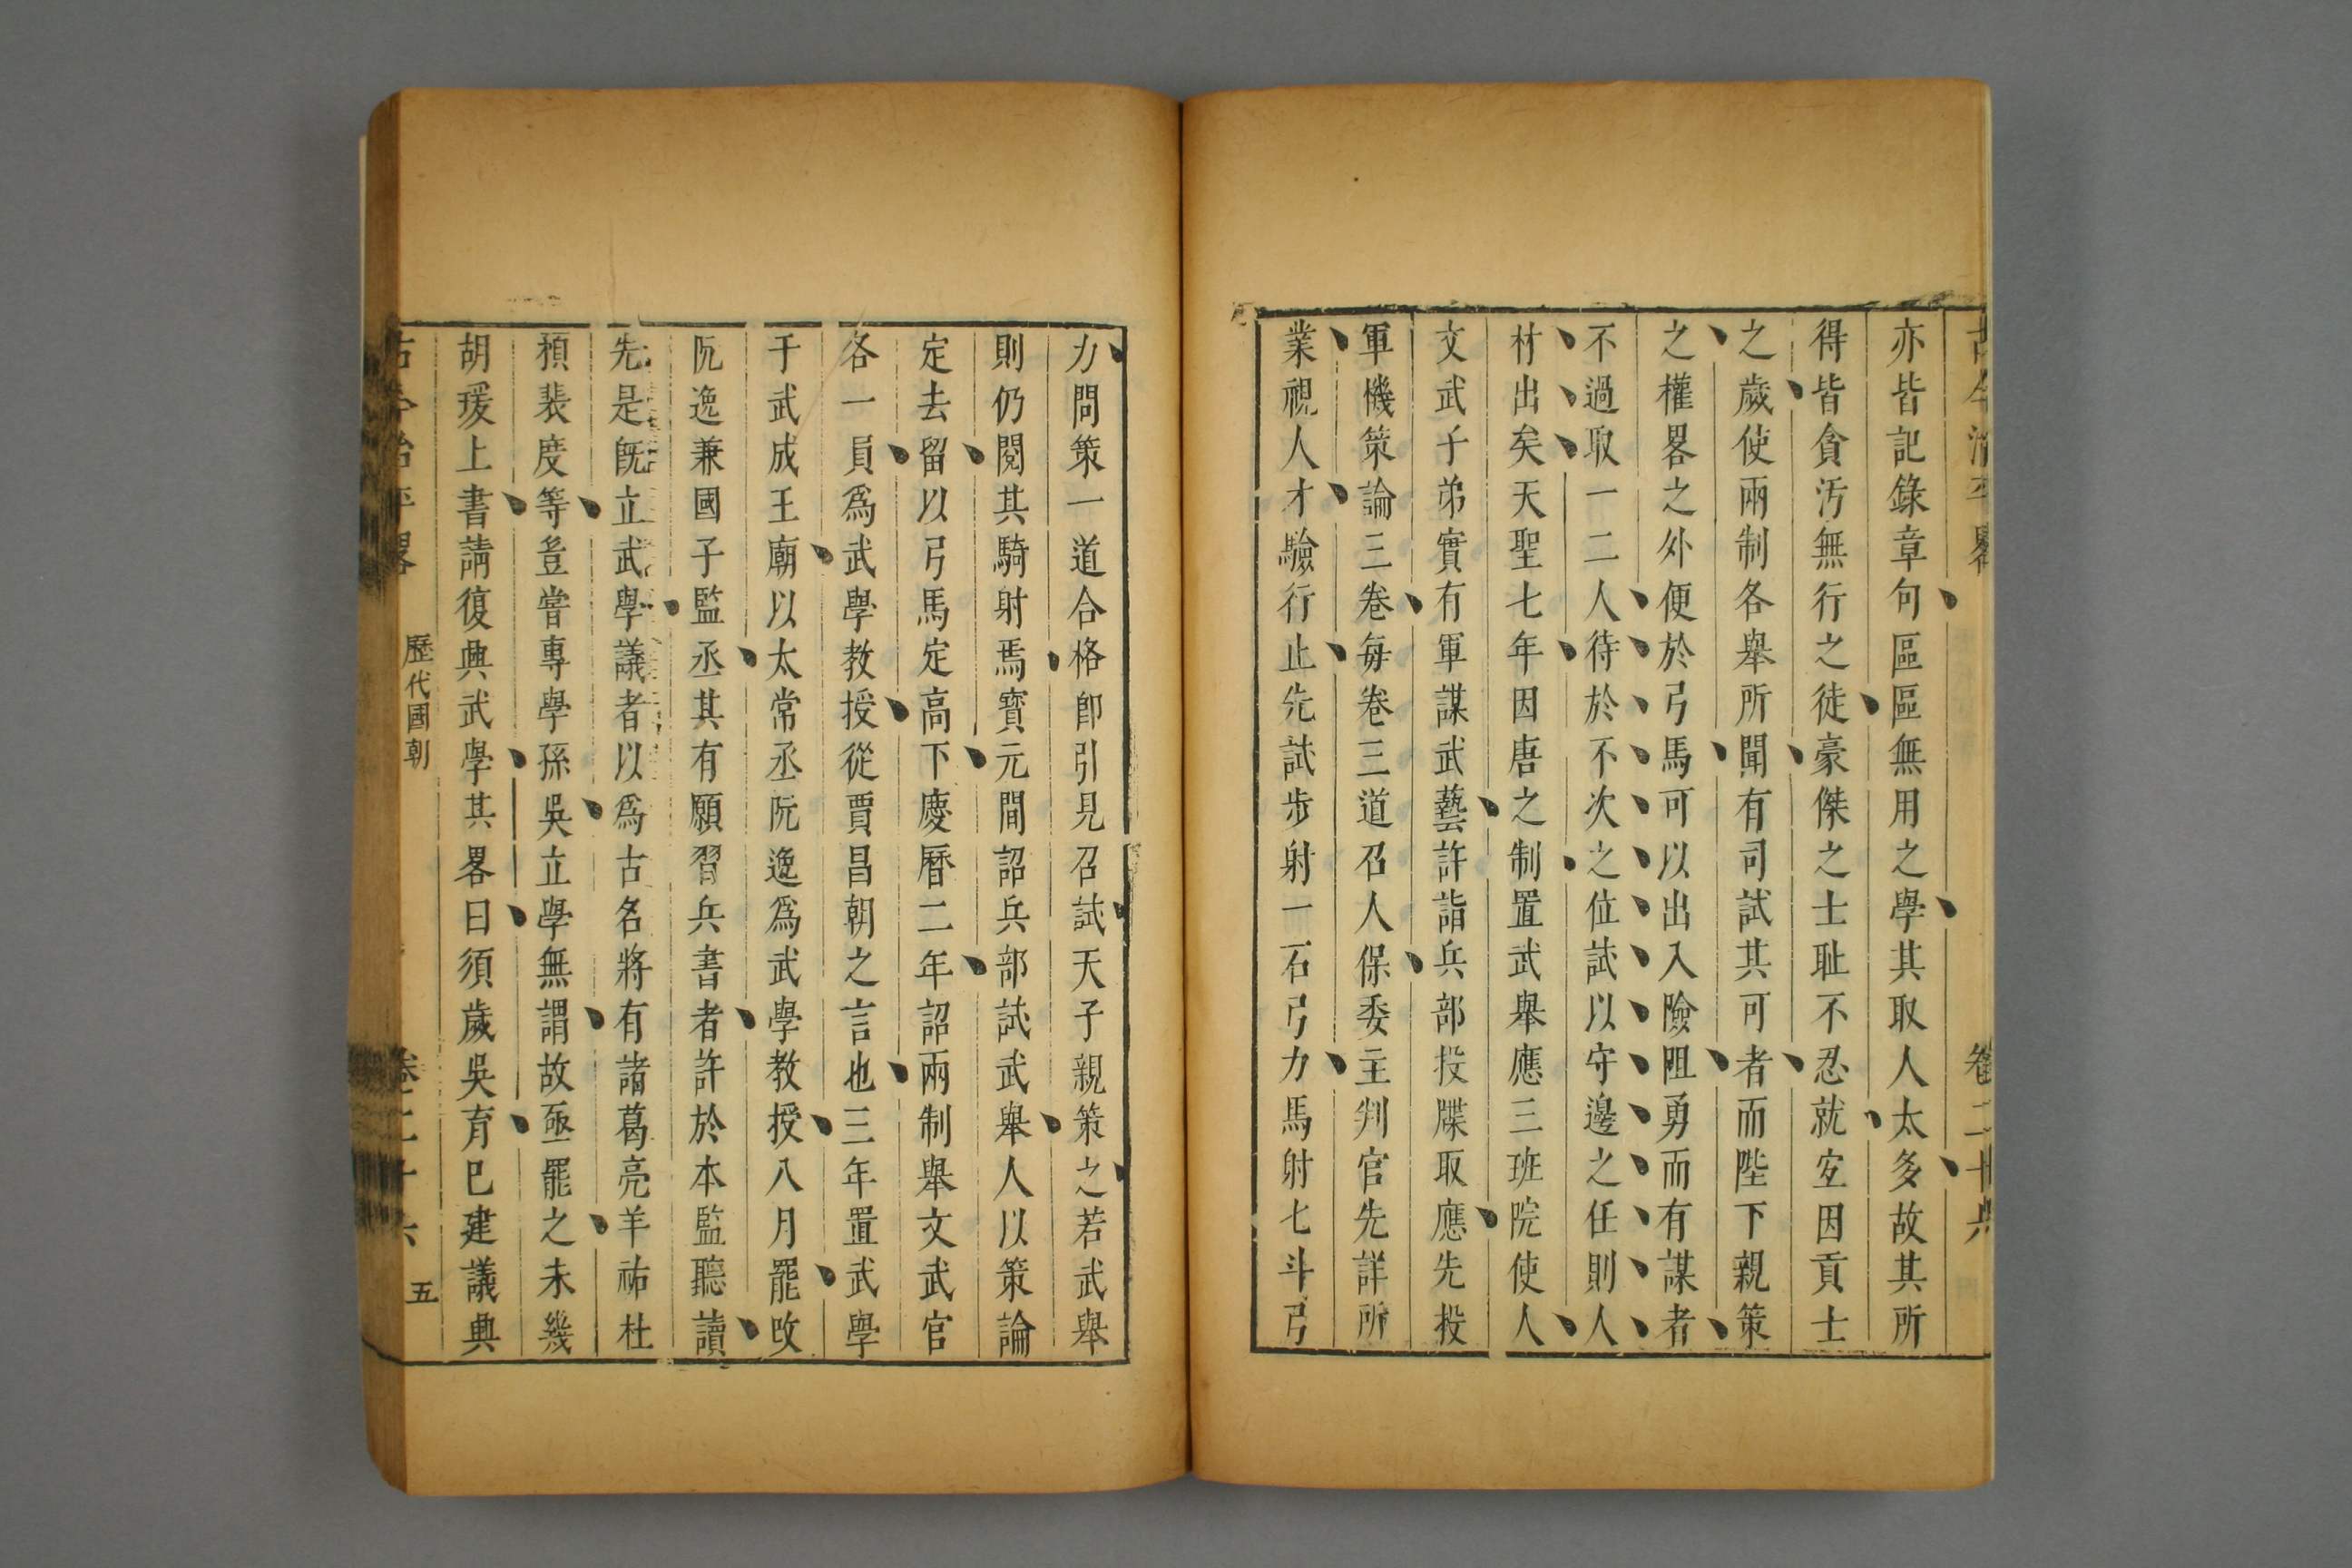 古今治平畧 卷二十六
亦皆記錄章句區區無用之學其取人太多故其所
得皆貪汚無行之徒豪傑之士耻不忍就宜因貢士
之歲使兩制各舉所聞有司試其可者而陛下親策
之權畧之外便於弓馬可以出入險阻勇而有謀者
不過取一二人待於不次之位試以守邊之任則人
材出矣天聖七年因唐之制置武舉應三班院使人
文武子弟實有軍謀武藝許詣兵部投牒取應先投
軍機策論三卷每卷三道召人保委主判官先詳所
業視人才驗行止先試步射一石弓力馬射七斗弓
力問策一道合格卽引見召試天子親策之若武舉
則仍閱其騎射焉寶元間詔兵部試武舉人以策論
定去留以弓馬定高下慶曆二年詔兩制舉文武官
各一員爲武學教授從賈昌朝之言也三年置武學
于武成王廟以太常丞阮逸爲武學教授八月罷攺
阮逸兼國子監丞其有願習兵書者許於本監聽讀
先是旣立武學議者以爲古名將有諸葛亮羊祜杜
預裴度等豈嘗專學孫吳立學無謂故亟罷之未幾
胡瑗上書請復興武學其畧曰須歲吳育已建議興
古今治平畧 歷代國朝 卷二十六 五